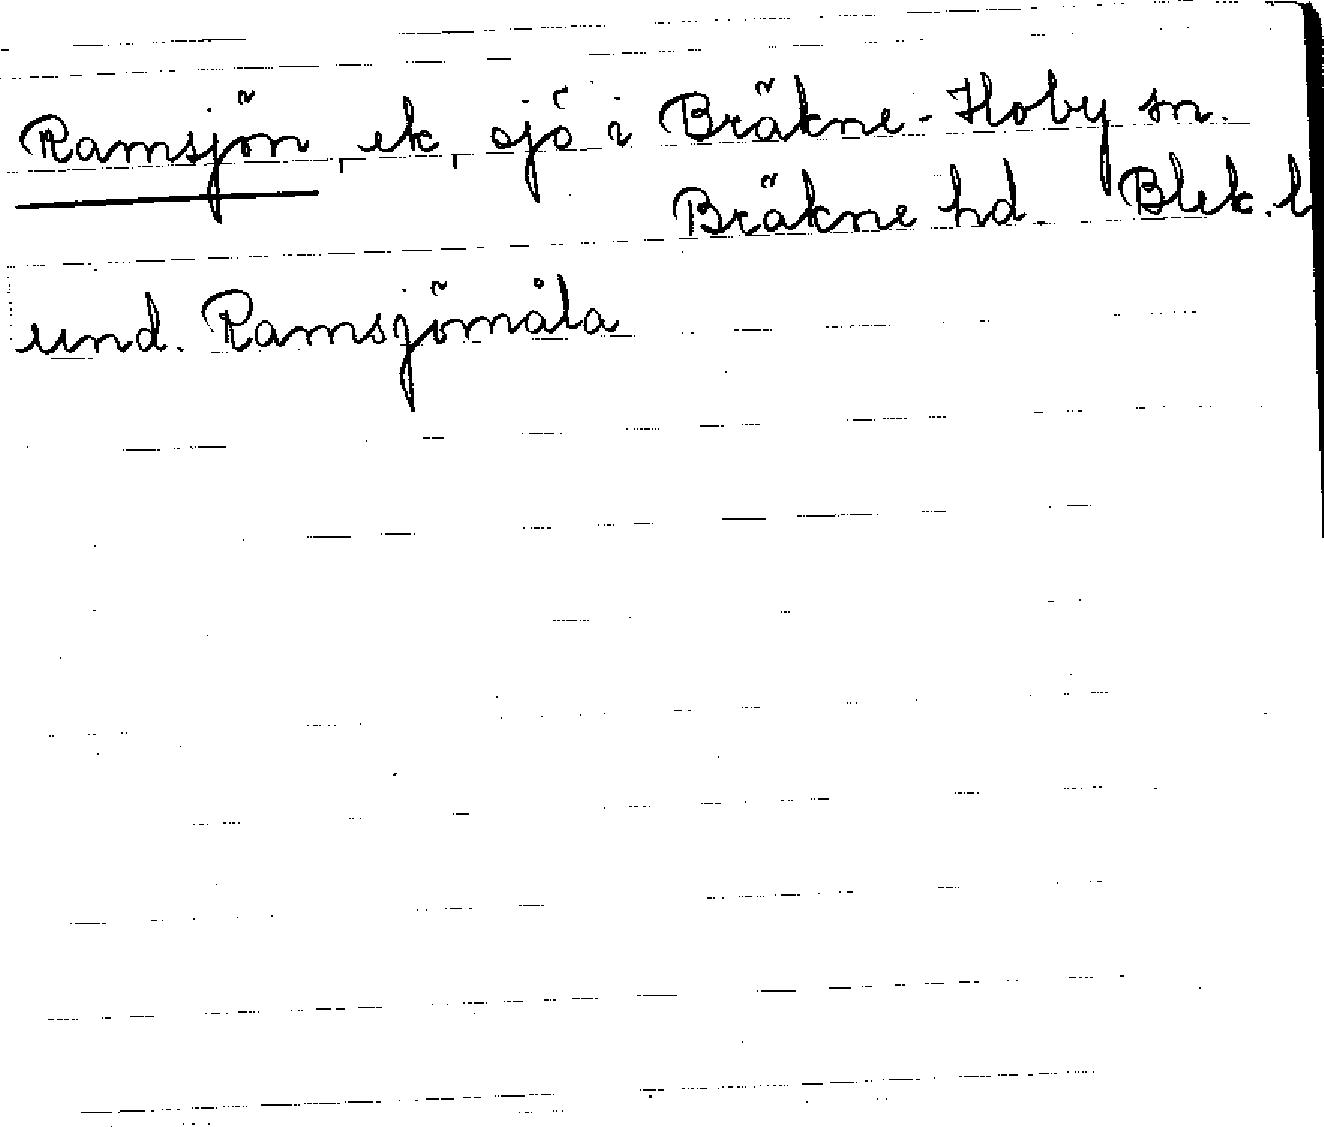 Ramsjön, ek, sjö i Bräkne-Hoby sn.
Bräkne hd. Blek. l
und. Ramsjömåla